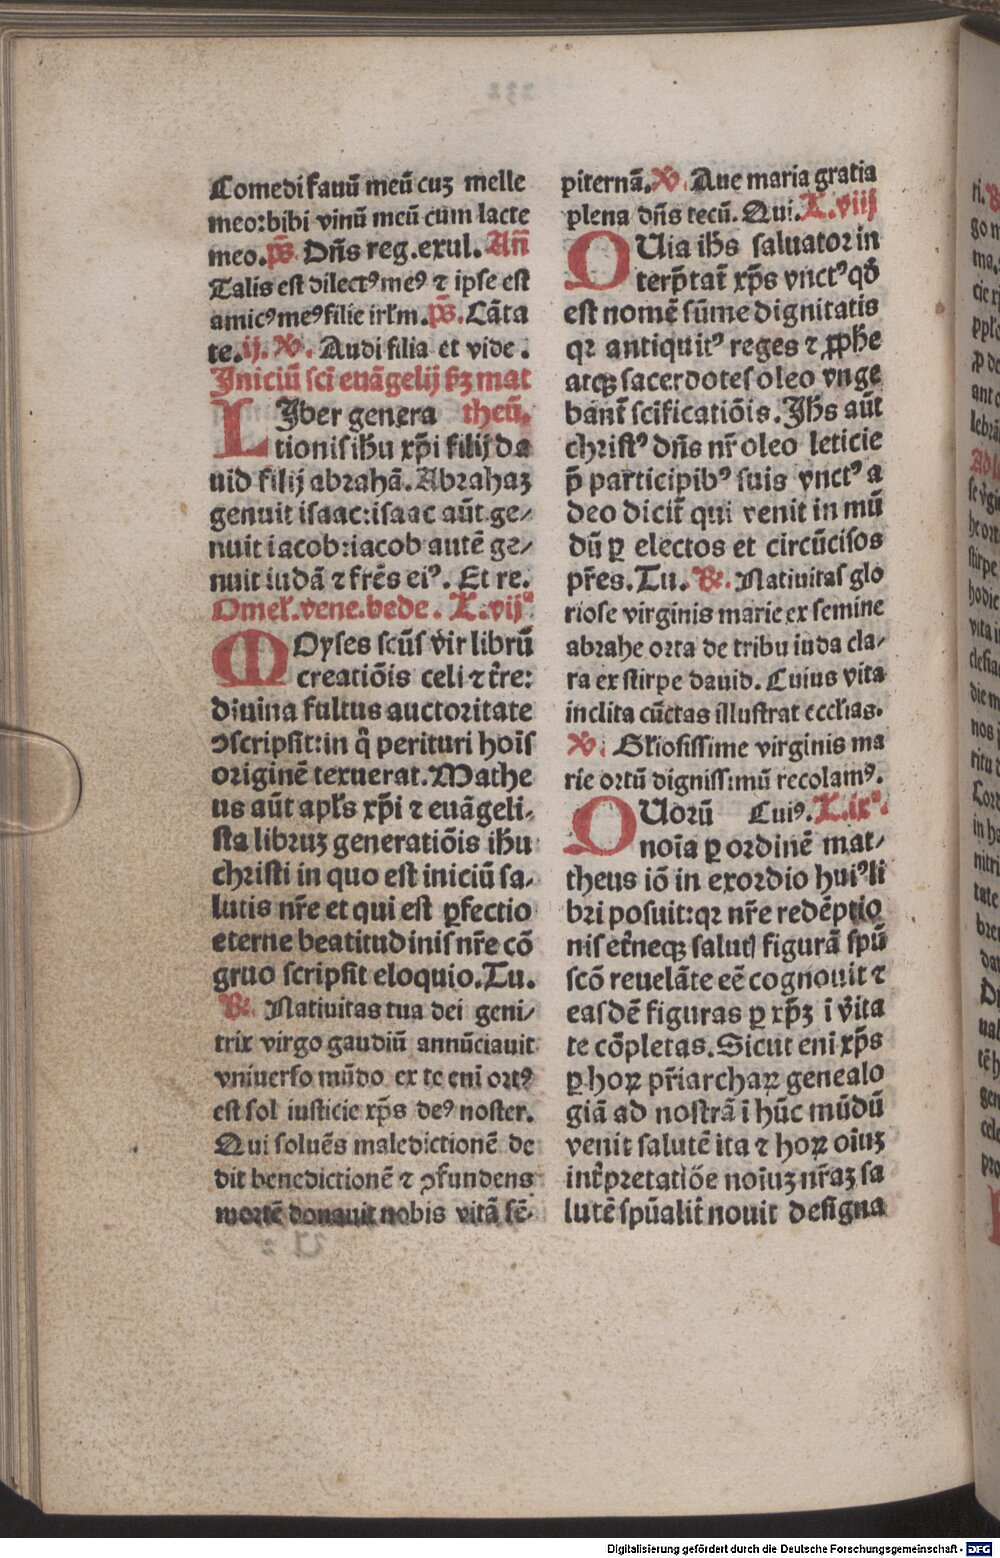 Comedi fauū meū cuꝫ melle
meo:bibi vinū meū cum lacte
meo.p̄s. Dn̄s reg.exul. An̄
Talis est dilectꝰ meꝰ ⁊ ipse est
amicꝰ meꝰ filie irl̄m.p̄s. Cāta
te.ij. V̄. Audi filia et vide.
Iniciū sc̄i euāgelij s̄ꝫ mat
LIber genera theū.
tionis ih̄u xp̄i filij da
uid filij abrahā. Abrahaꝫ
genuit isaac:isaac aūt ge⸗
nuit iacob:iacob autē ge⸗
nuit iudā ⁊ fr̄es eiꝰ. Et re.
Omel̄.vene.bede. L.vijᵃ
MOyses scūs vir librū
creatiōis celi ⁊ tr̄e:
diuina fultus auctoritate
ↄscripsit:in q̄ perituri hoīs
originē texuerat. Mathe
us aūt apl̄s xp̄i ⁊ euāgeli⸗
sta libruꝫ generatiōis ih̄u
christi in quo est iniciū sa⸗
lutis nr̄e et qui est ꝑfectio
eterne beatitudinis nr̄e cō
gruo scripsit eloquio. Tu.
R̄. Natiuitas tua dei geni⸗
trix virgo gaudiū annūciauit
vniuerso mūdo ex te eni ortꝰ
est sol iusticie xp̄s deꝰ noster.
Qui soluēs maledictionē de
dit benedictionē ⁊ ꝯfundens
mortē donauit nobis vitā sē⸗
piternā. V̄. Aue maria gratia
plena dn̄s tecū. Qui. L.viij
QUia ih̄s saluator in
terp̄tat̄ xp̄s vnctꝰ qd̄
est nomē sūme dignitatis
qꝛ antiquitꝰ reges ⁊ ꝓphe
atqꝫ sacerdotes oleo vnge
bant̄ sc̄ificatiōis. Jh̄s aūt
christꝰ dn̄s nr̄ oleo leticie
p̄ participibꝰ suis vnctꝰ a
deo dicit̄ qui venit in mū
dū ꝑ electos et circūcisos
pr̄es. Tu. R̄. Natiuitas glo
riose virginis marie ex semine
abrahe orta de tribu iuda cla⸗
ra ex stirpe dauid. Cuius vita
inclita cūctas illustrat eccl̄ias.
V̄. Gl̄iosissime virginis ma
rie ortū dignissimū recolamꝰ.
QUorū Cuiꝰ. L.ixᵃ.
noīa ꝑ ordinē mat⸗
theus iō in exordio huiꝰ li
bri posuit:qꝛ nr̄e redēptio
nis et̄neqꝫ salut figurā spū
scō reuelāte eē cognouit ⁊
easdē figuras ꝑ xp̄ꝫ ī vita
te cōpletas. Sicut eni xp̄s
ꝑ hoꝝ pr̄iarchaꝝ genealo
giā ad nostrā ī hūc mūdū
venit salutē ita ⁊ hoꝝ oīuꝫ
int̄pretatiōe noīuꝫ nr̄aꝫ sa
lutē spūalit̄ nouit designa
Digitalisierung gefördert durch die Deutsche Forschungsgemeinschaft - DFG